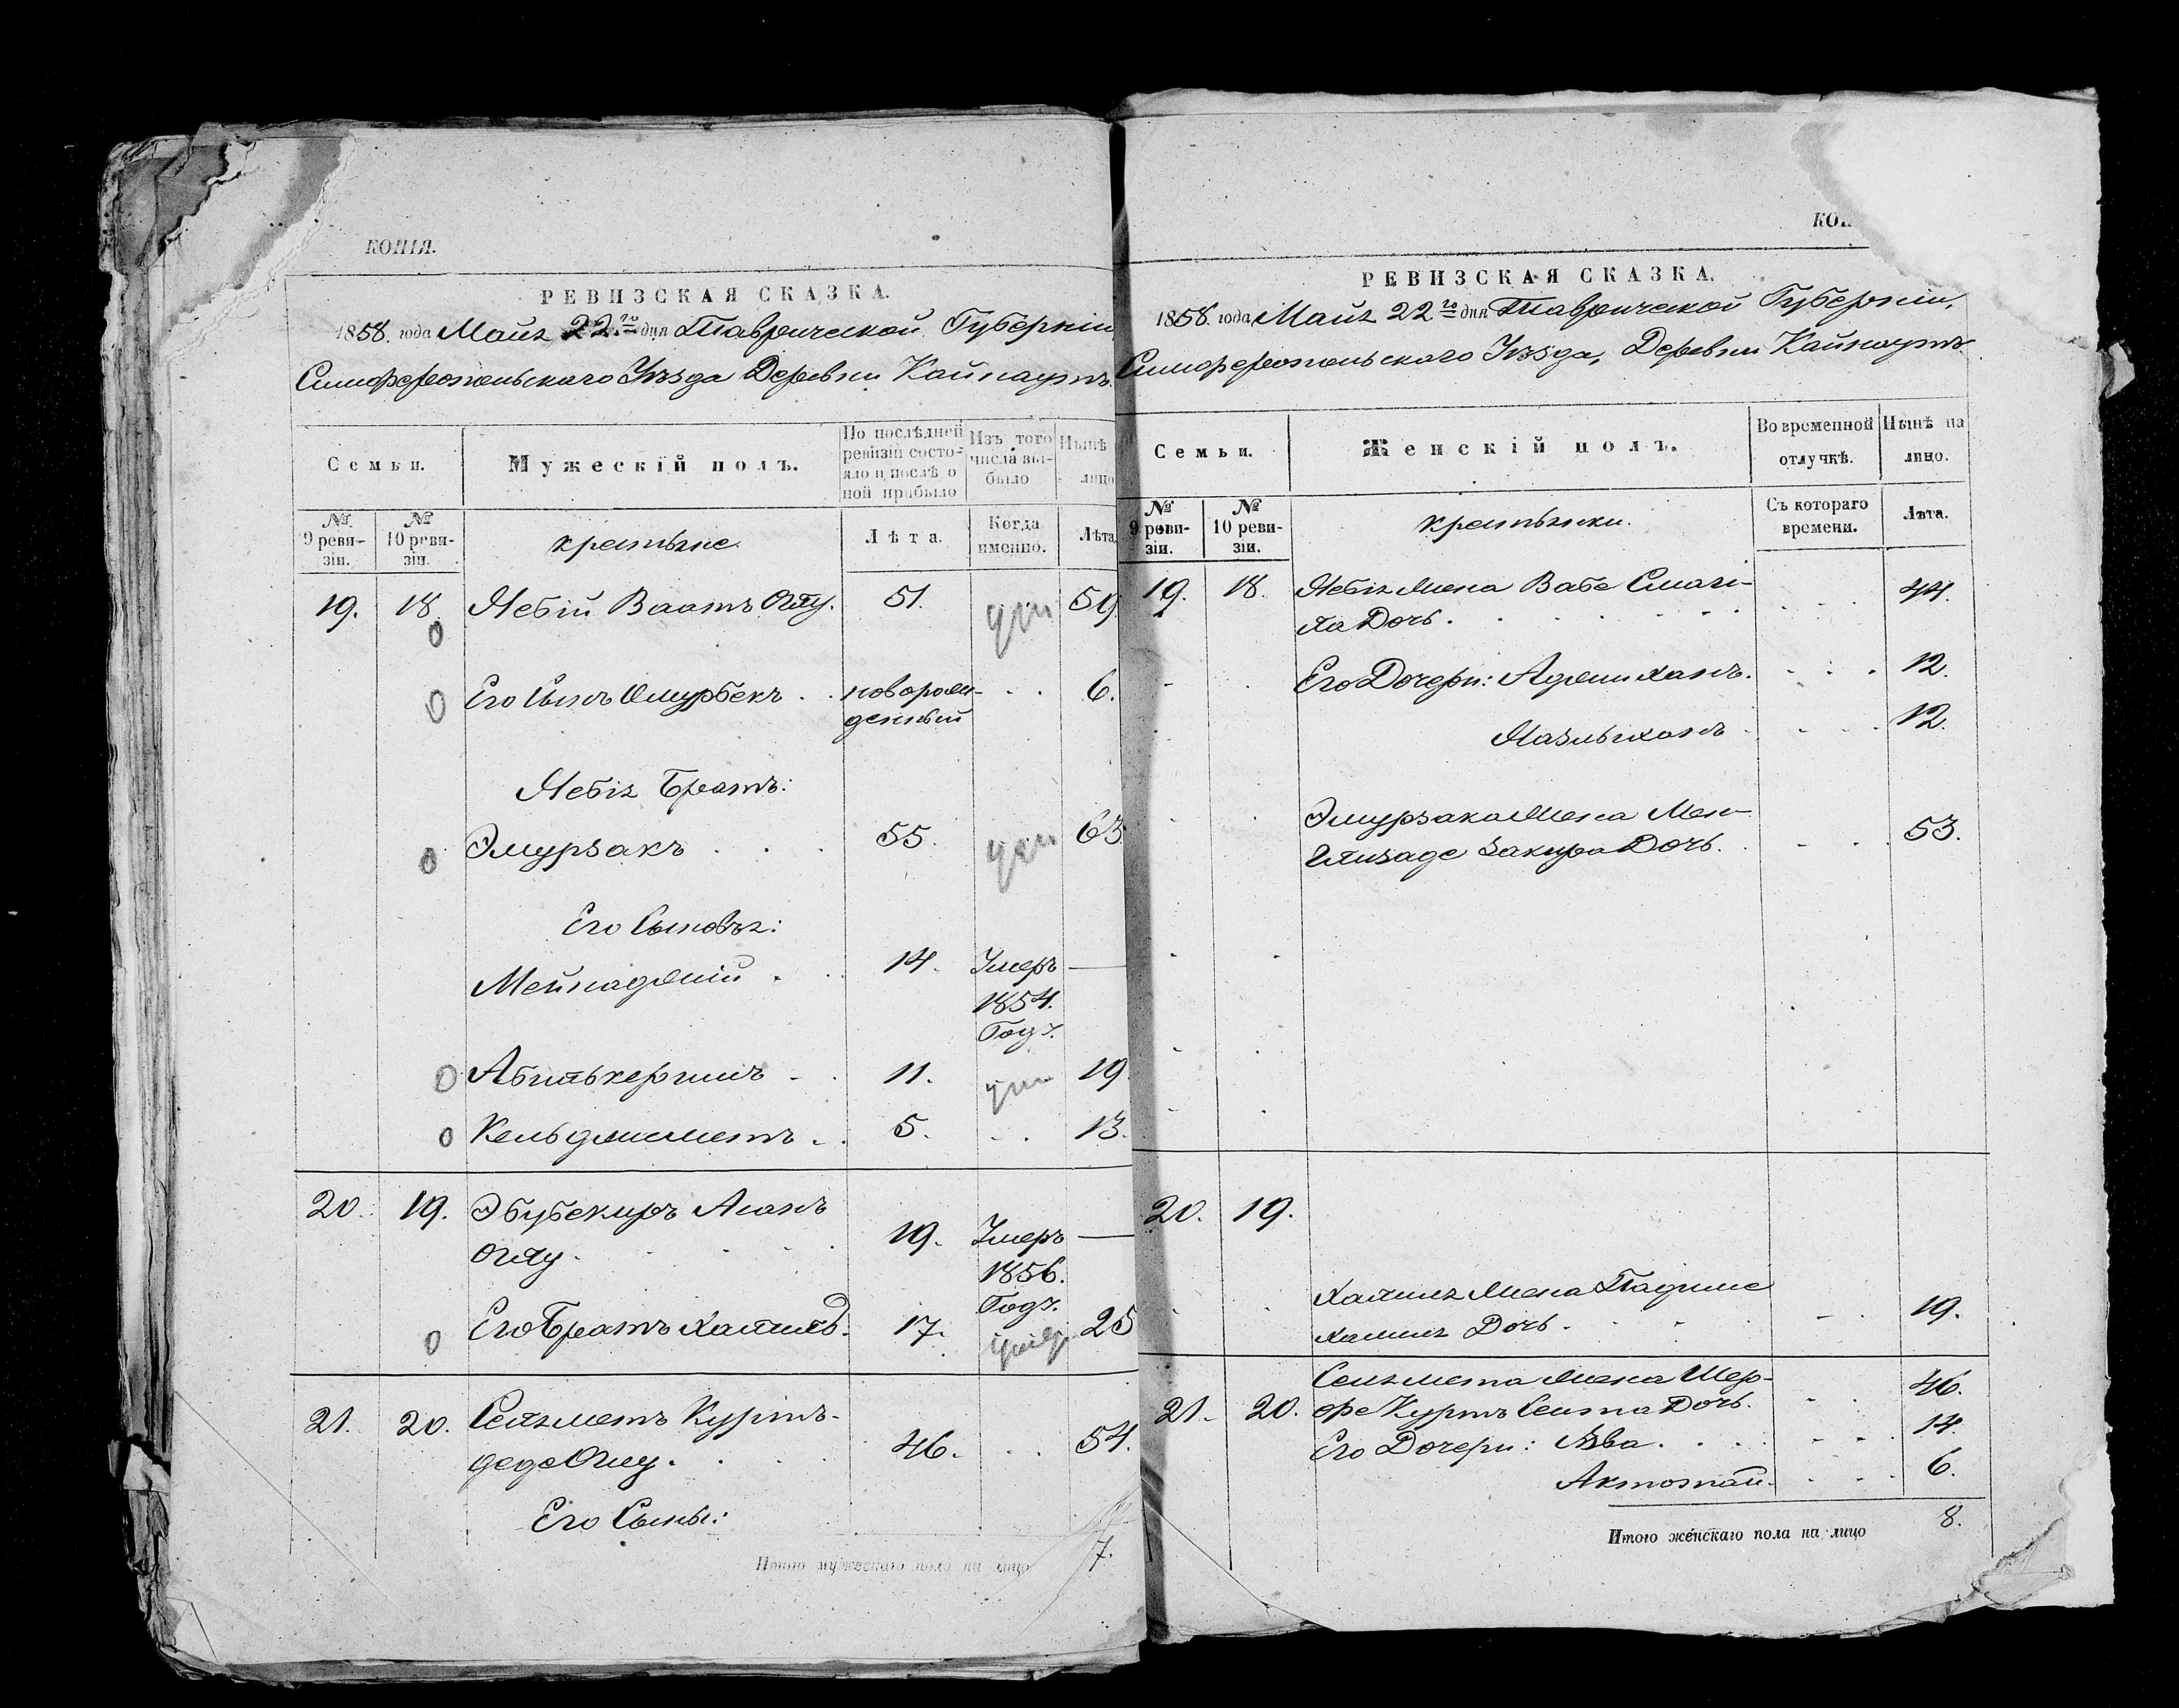 КОПІЯ.
РЕВИЗСКАЯ СКАЗКА.
1858. года Маія 22го дня Таврической Губерніи,
Симферопольскаго Уѣзда Деревни Кайнаутъ.
Семьи.
Мужескій полъ.
По послѣдней ревизіи состо-
яло и послѣ о
ной прибыло
Изъ того
числа вы-
было
Нынѣ
лицо
№ 9 реви-
зіи.
№ 10 реви-
зіи.
крестьяне.
Лѣта.
Когда
именно.
Лѣта.
19. 18. Небій Ваатъ Оглу. 51. 59
Его Сынъ Омурбекъ . . новорож-
денный . . 6.
Небія Братъ:
Эмурзакъ . . . 55. 63.
Его Сыновья:
14. Умеръ —
1854.
Годѣ.
Абилькеримъ . . 11. 19
Кельджеметъ . . 5. . . 13.
20. 19. Эбубекиръ Асанъ
Оглу. 19. Умеръ —
1856.
Годѣ.
Его Братъ Халиль. 17. 25
21. 20. Сеяметъ Куртъ-
деде Оглу. 46. . . 54.
Его Сыны:
Итого мужескаго пола на лицо 7.
КОП
РЕВИЗСКАЯ СКАЗКА.
1858. года Маія 22го дня Таврической Губерніи,
Симферопольскаго Уѣзда, Деревни Кайнаутъ.
Семьи.
Женскій полъ.
Во временной
отлучкѣ.
Нынѣ на
лицо.
№
9 реви-
зіи.
№
10 реви-
зіи.
крестьянки.
Съ котораго
времени.
Лѣта.
19. 18. Небія Жена Вабе Смаи-
ла Дочь. 44.
Его Дочери: Аджиханъ. 12.
Назлыханъ 12.
Эмурзака Жена Мен-
Закира Дочь. 53.
20. 19.
Халиля Жена
Халиля Дочь. 19.
Сеямета Жена Шер-
фе Куртъ Сеита Дочь. 46.
21. 20. Его Дочери: . . . 14.
Актотай. 6.
Итого женскаго пола на лицо 8.